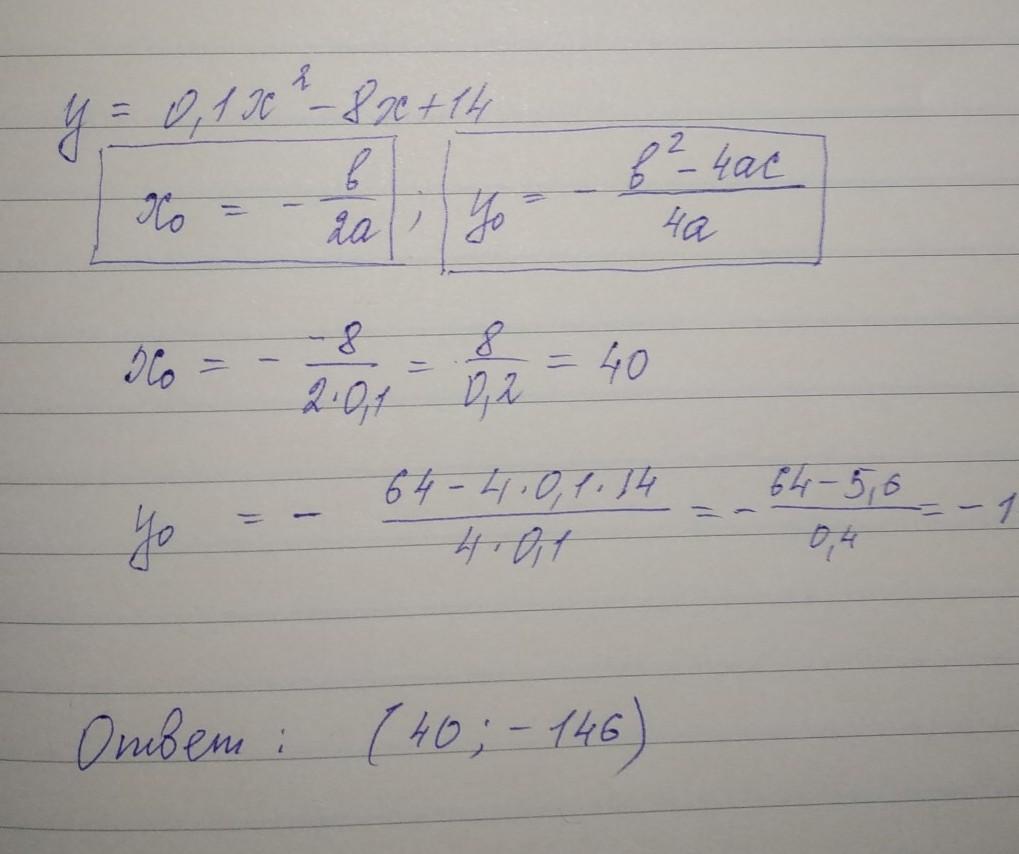 y = 0,1x² - 8x + 14
x₀ = - в/2a ; y₀ = - в² - 4ac/4a
x₀ = - -8/2·0,1 = 8/0,2 = 40
y₀ = - 64 - 4·0,1·14/4·0,1 = - 64 - 5,6/0,4 = - 1
Ответ : (40 ; - 146)